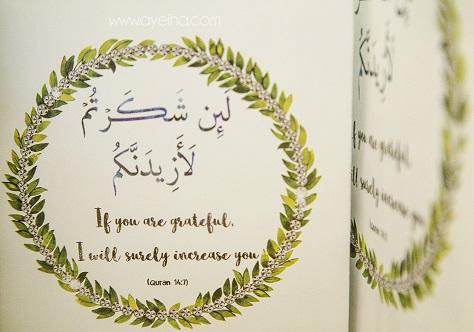 www.ayeina.com
لَئِن شَكَرْتُمْ
لَأَزِيدَنَّكُمْ
If you are grateful,
I will surely increase you
(Quran 14:7)
شَكَرْتُمْ
لَأَزِيدَنَّكُمْ
If you are grateful,
will surely increase you
(Quran 14:7)